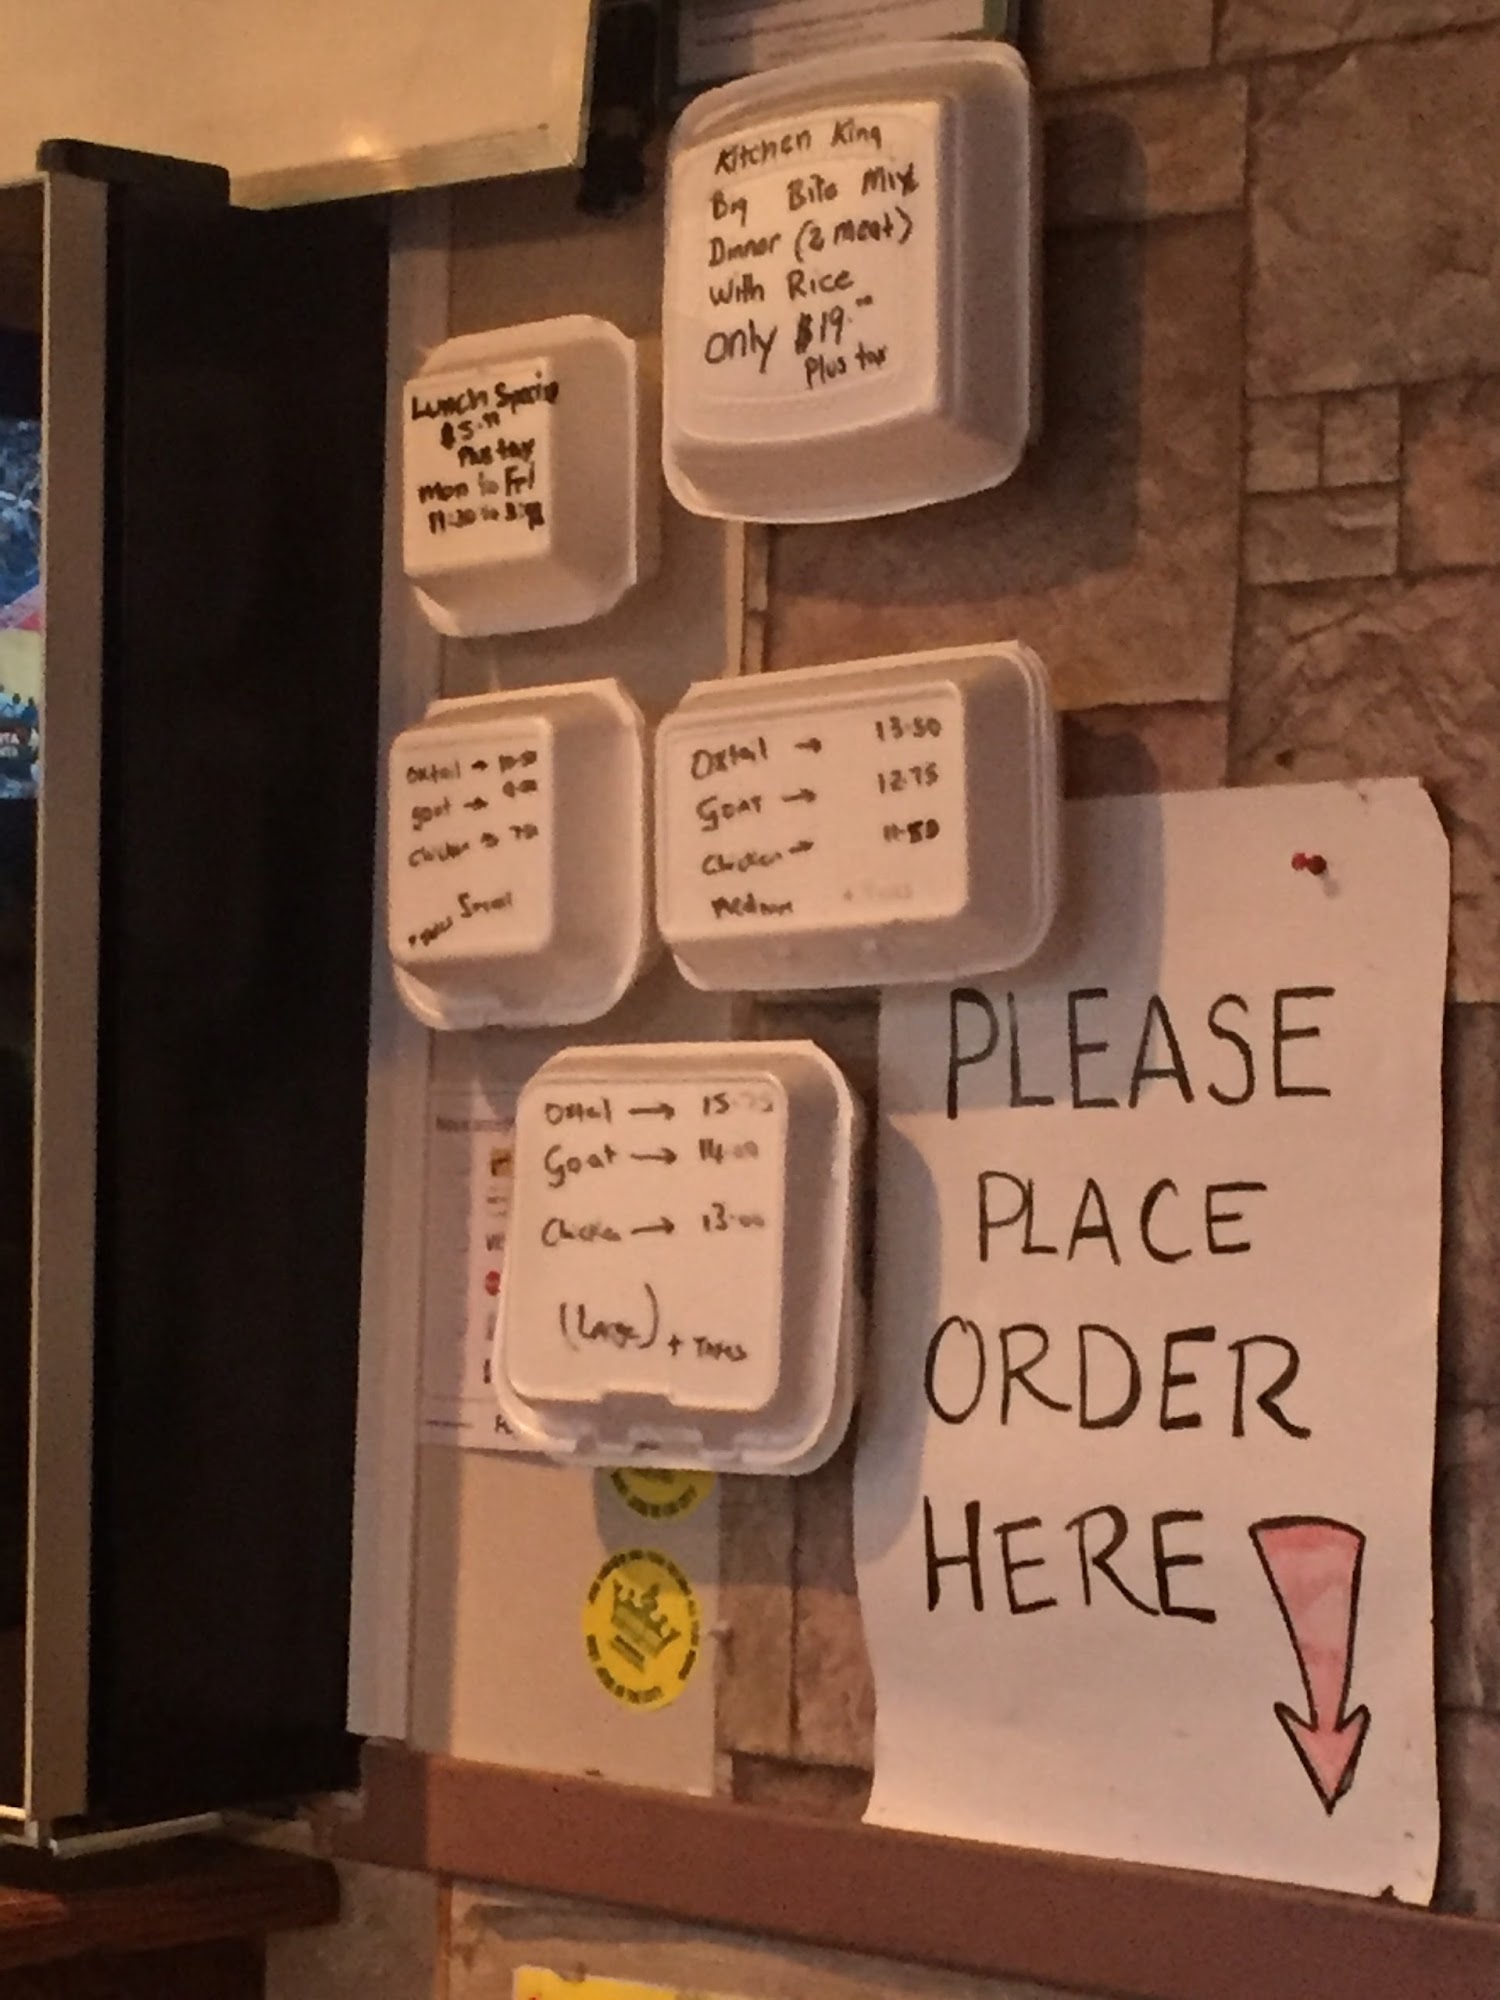 Kitchen King
Big Bite Mix
Dinner (2 meat)
with Rice
only $19.00
Plus tax
Lunch Special
$5.99
Plus tax
Mon to Fri
11:30 to
Oxtail → 10.50
goat → 9.00
Chicken →
Small
Oxtail → 13.50
goat → 12.75
Chicken → 11.50
Medium
Oxtail → 15.75
Goat → 14.00
Chicken → 13.00
(Large) + Taxes
PLEASE
PLACE
ORDER
HERE